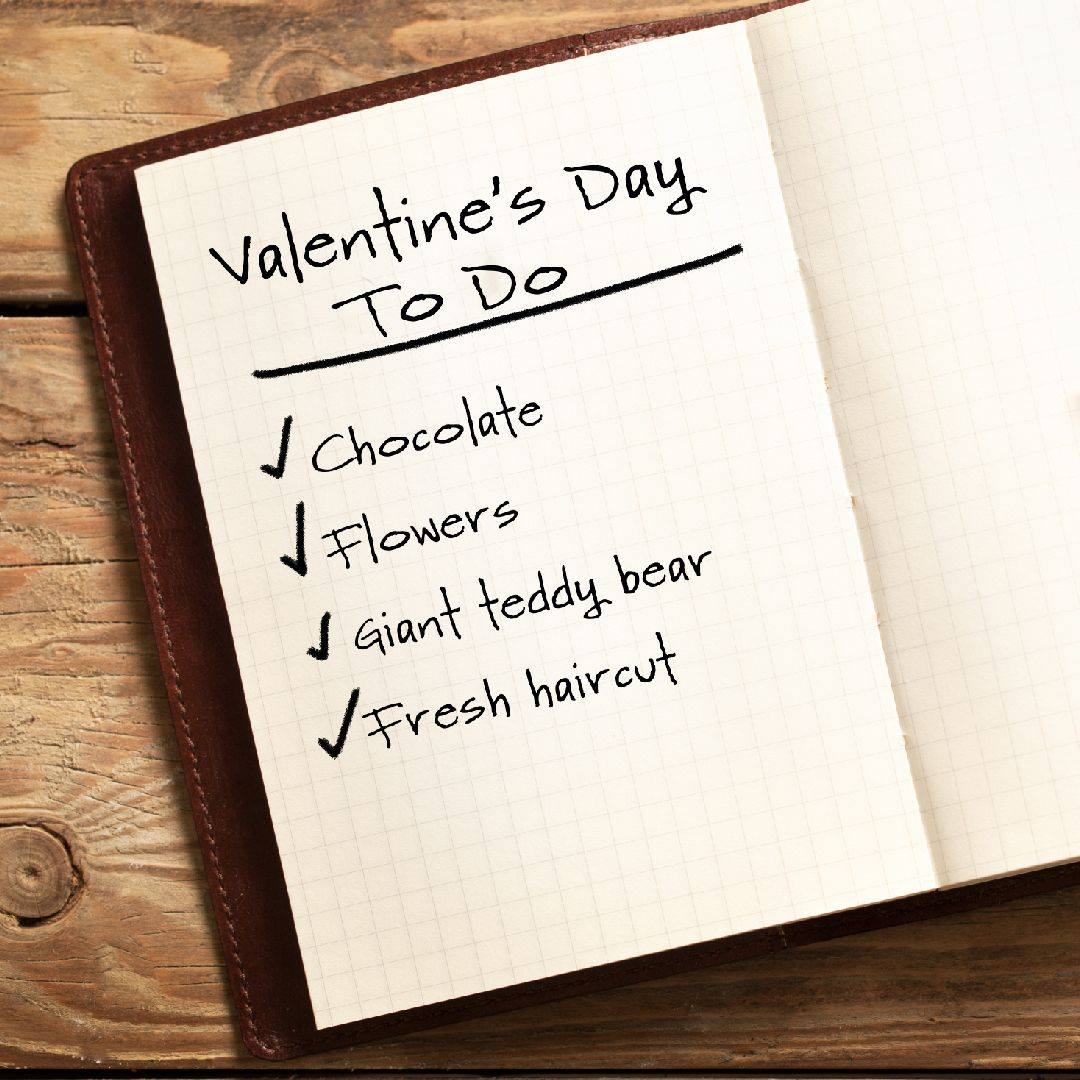 Valentine's Day
To Do
✓ Chocolate
✓ Flowers
✓ Giant teddy bear
✓ Fresh haircut